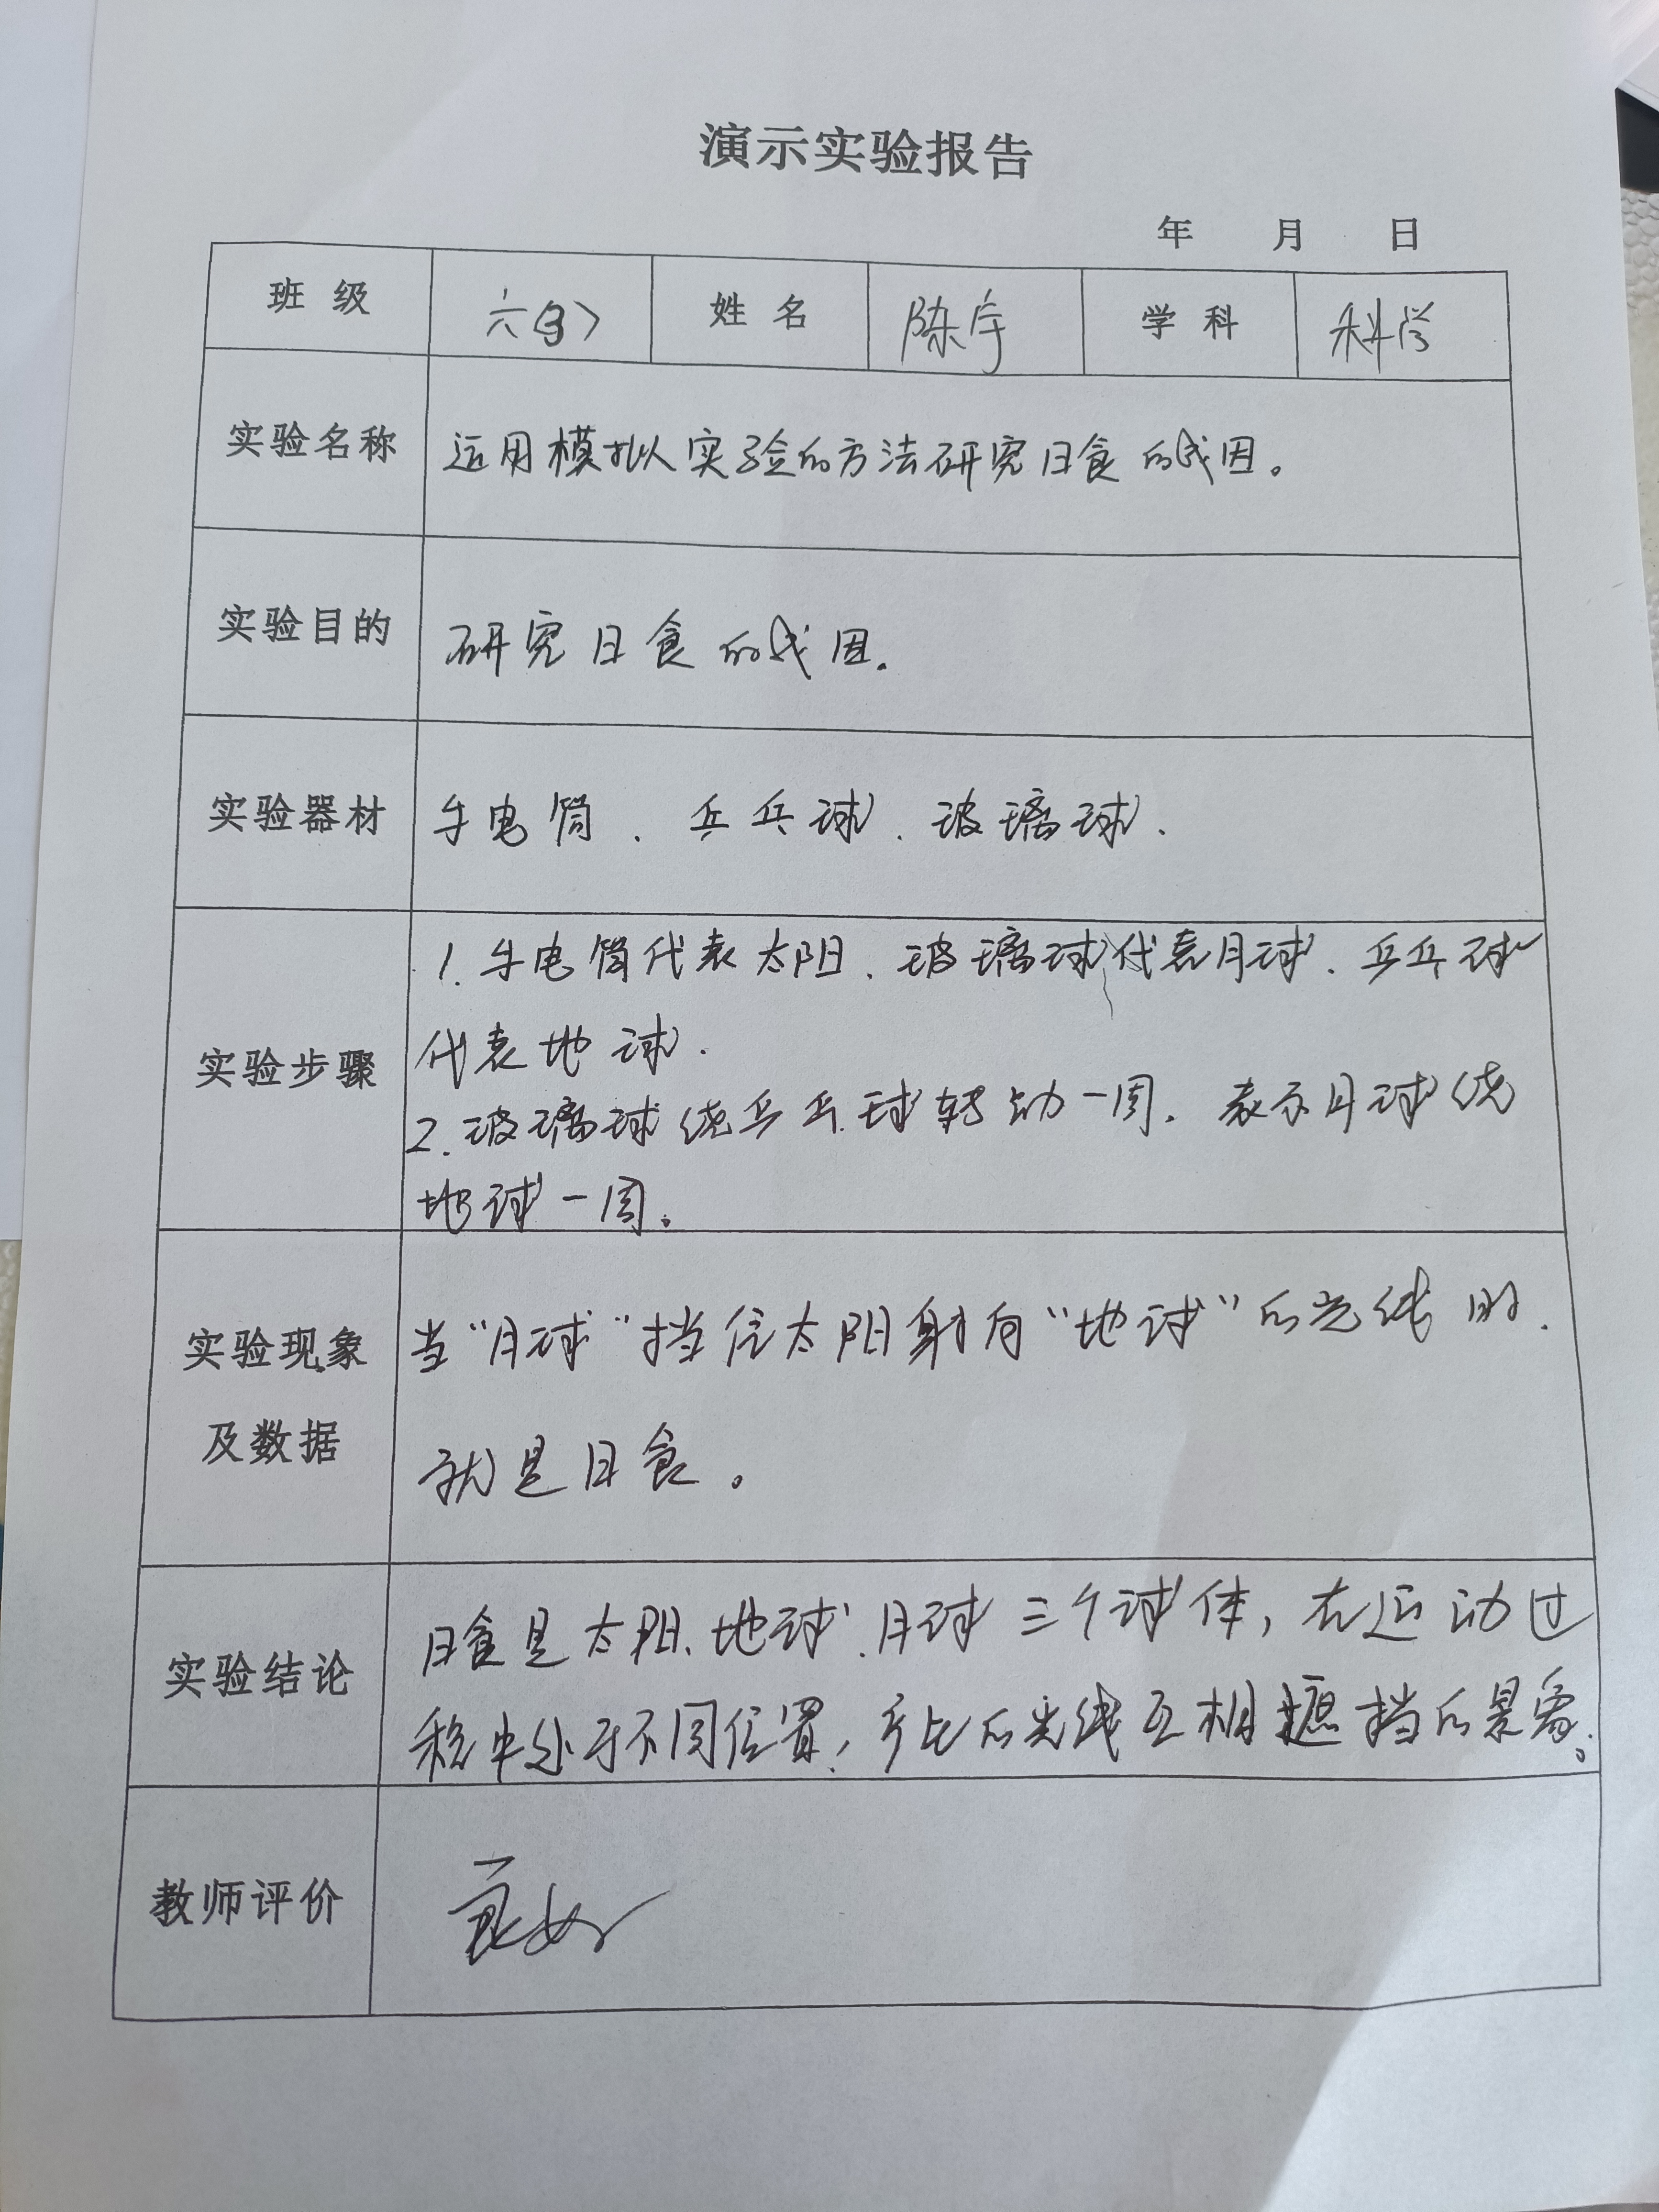 演示实验报告
年 月 日
班 级 六(3) 姓 名 陈宇 学 科 科学
实验名称 运用模拟实验的方法研究日食的成因。
实验目的 研究日食的成因.
实验器材 手电筒、乒乓球、玻璃球.
1. 手电筒代表太阳、玻璃球代表月球、乒乓球
代表地球.
实验步骤
2. 玻璃球绕乒乓球转动一周, 表示月球绕
地球一周。
当“月球”挡住太阳射向“地球”的光线时.
实验现象
及数据
就是日食。
日食是太阳、地球、月球三个球体, 在运动过
实验结论
程中处于不同位置, 产生的光线互相遮挡的景象.
教师评价 良好